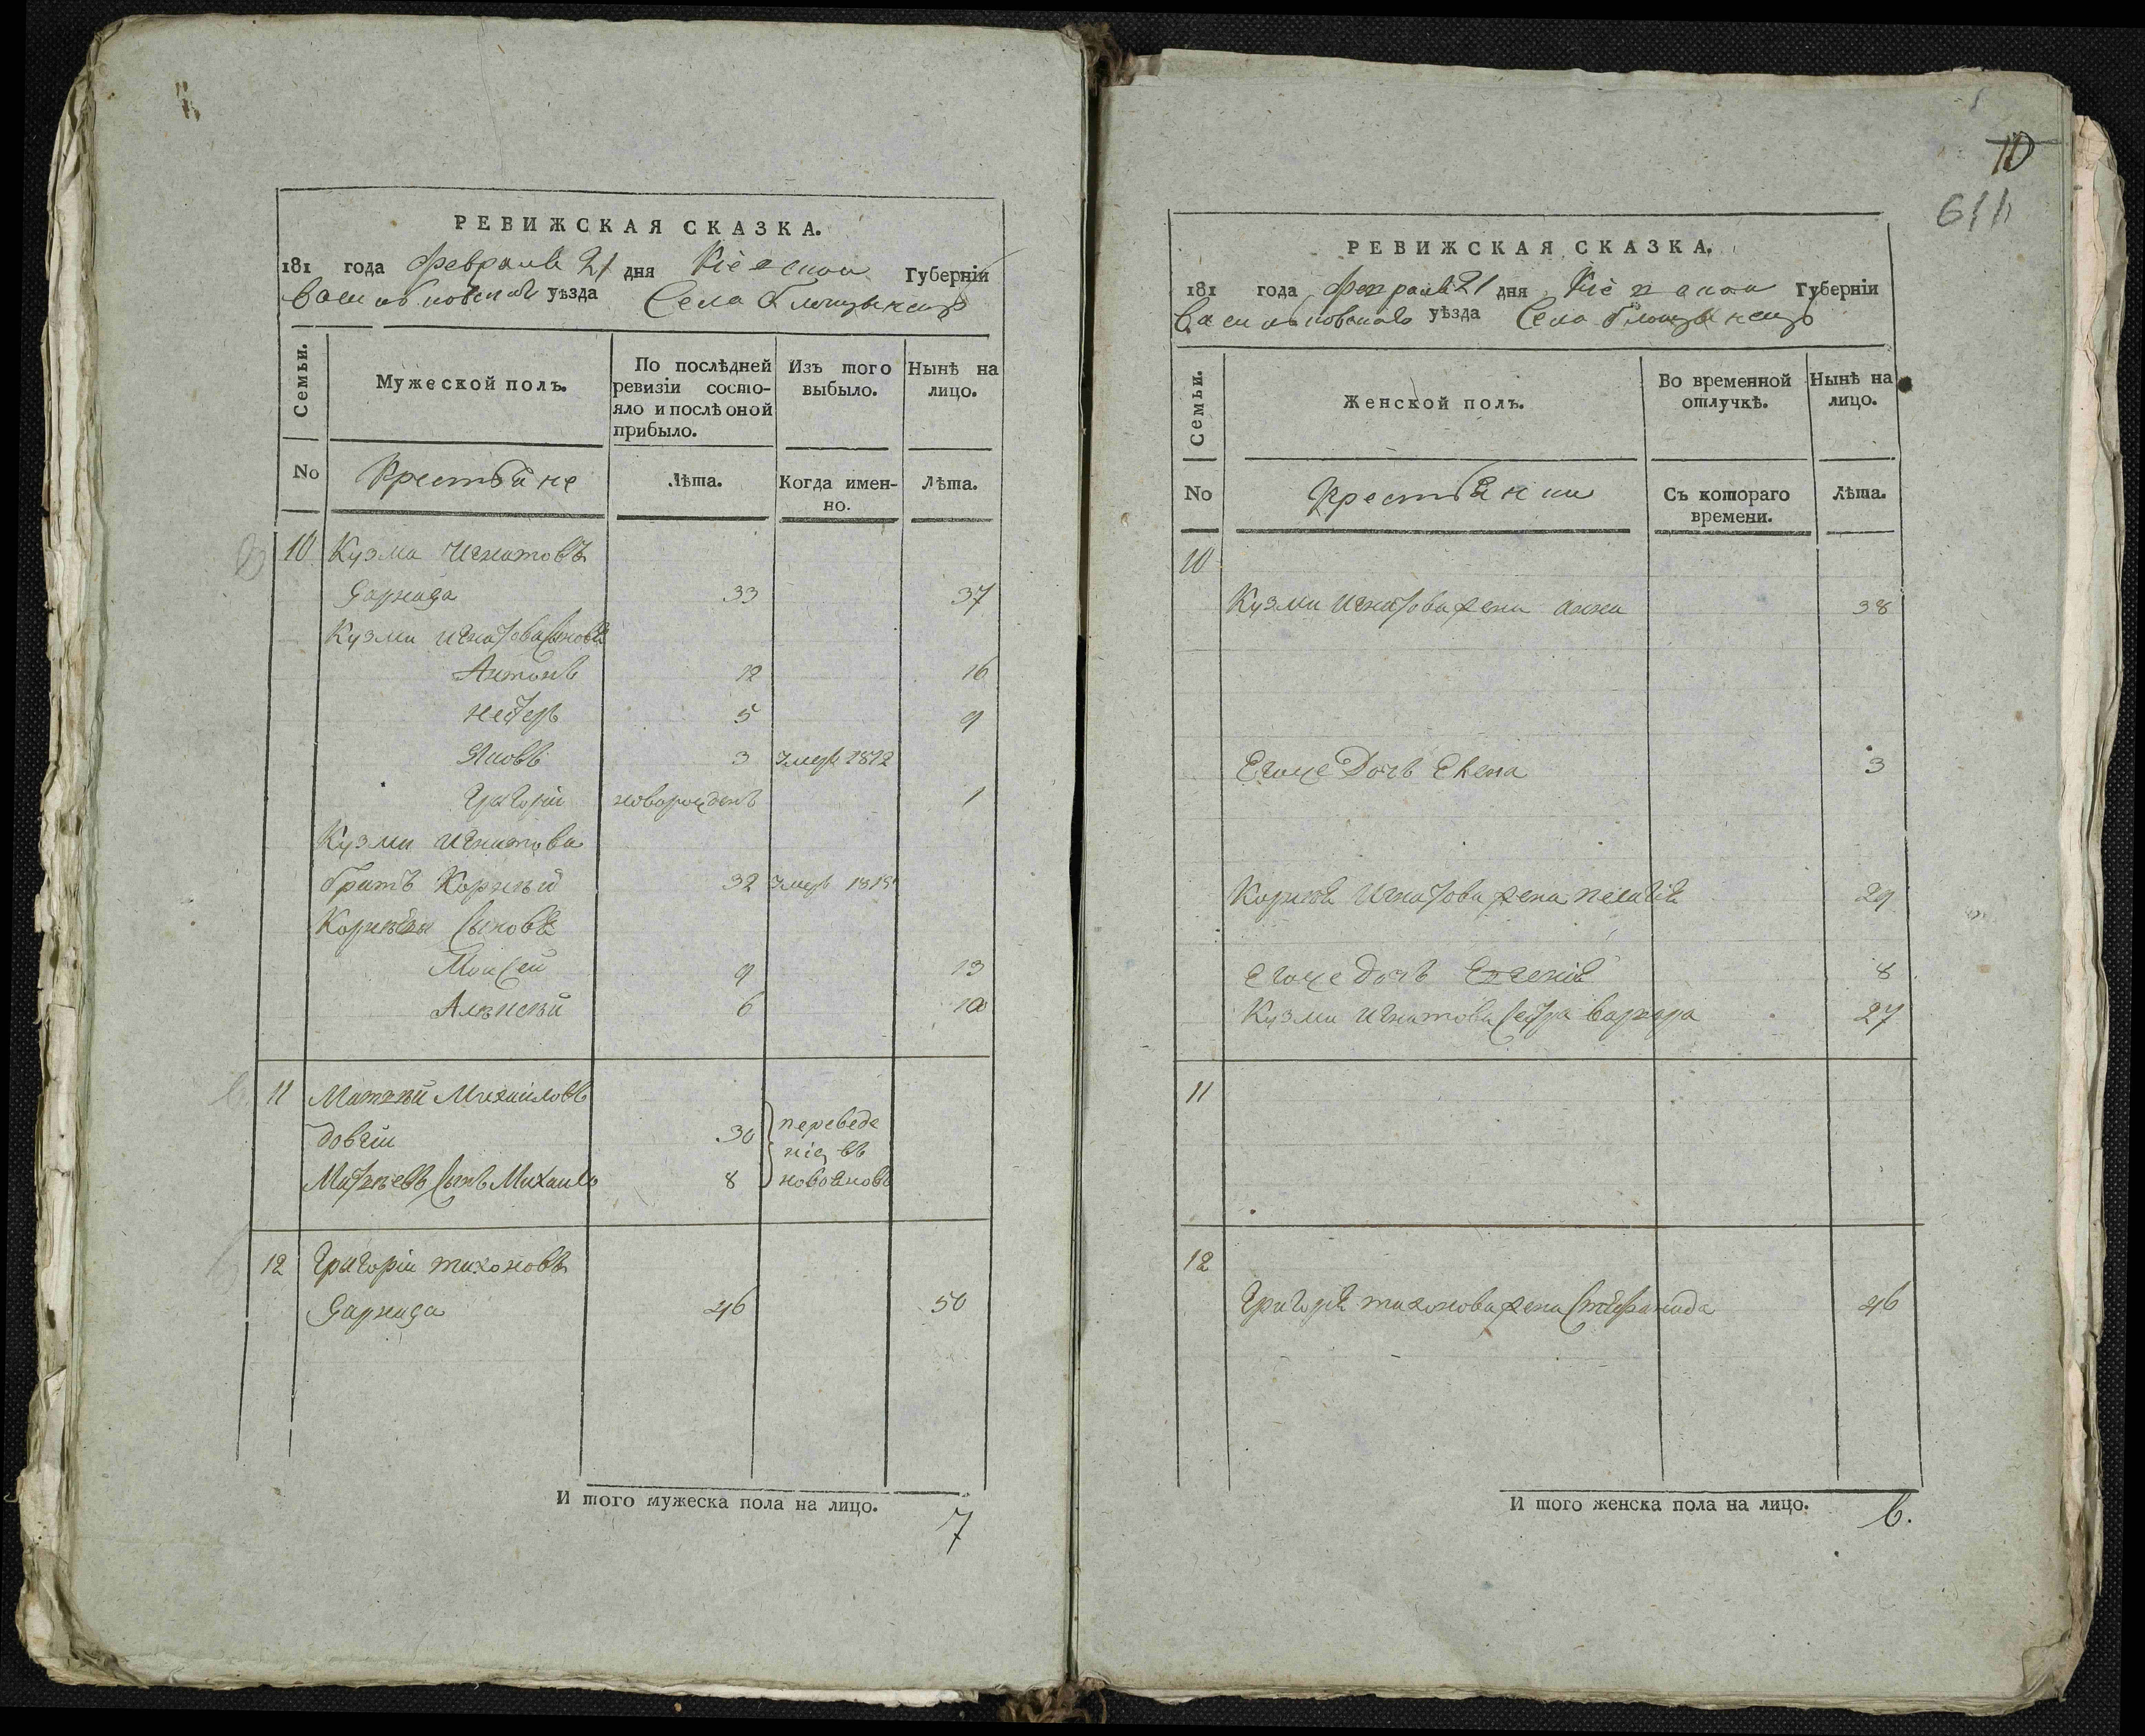 РЕВИЖСКАЯ СКАЗКА.
181 года февраля 21 дня Кіевской Губерніи
Васильковскаго уѣзда Села
Семьи.
Мужеской полъ.
По послѣдней ревизіи состо-
яло и послѣ оной
прибыло.
Изъ того выбыло.
Нынѣ на лицо.
No
Крестьяне
Лѣта.
Когда имен-
но.
Лѣта.
10 Кузма Игнатовъ
33 37
Кузми Игнатова сыновя
Антонъ 12 16
Нестеръ 5 9
Яковъ 3 умеръ 1812
Григорій новорожденъ 1
Кузми Игнатова
братъ Корнѣй 32 умеръ
Корнѣя сыновя
Моисей 9 13
Алексѣй 6 10
11 Матвѣй Михайловъ
Довгій 30 переведе
ніе въ
Матвѣевъ сынъ Михайло 8
12 Григорій Тихоновъ
46 50
И того мужеска пола на лицо.
7
10
611
РЕВИЖСКАЯ СКАЗКА.
181 года февраля 21 дня Кіевской Губерніи
Васильковскаго уѣзда Села
Семьи.
Женской полъ.
Во временной отлучкѣ.
Нынѣ на лицо.
No
Крестьянки
Съ котораго времени.
Лѣта.
10
Кузми Игнатова жена Анна 38
Егоже дочь Елена 3
Корнѣя Игнатова жена Пелагія 29
Егоже дочь Евгенія 8
Кузми Игнатова сестра Варвара 27
11
12
Григорія Тихонова жена Стефанида 46
И того женска пола на лицо.
6.